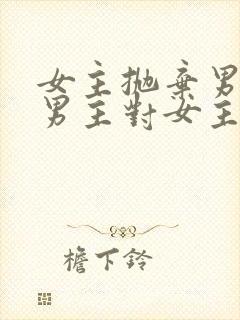 女主抛棄男
男主對女主
檐下鈴